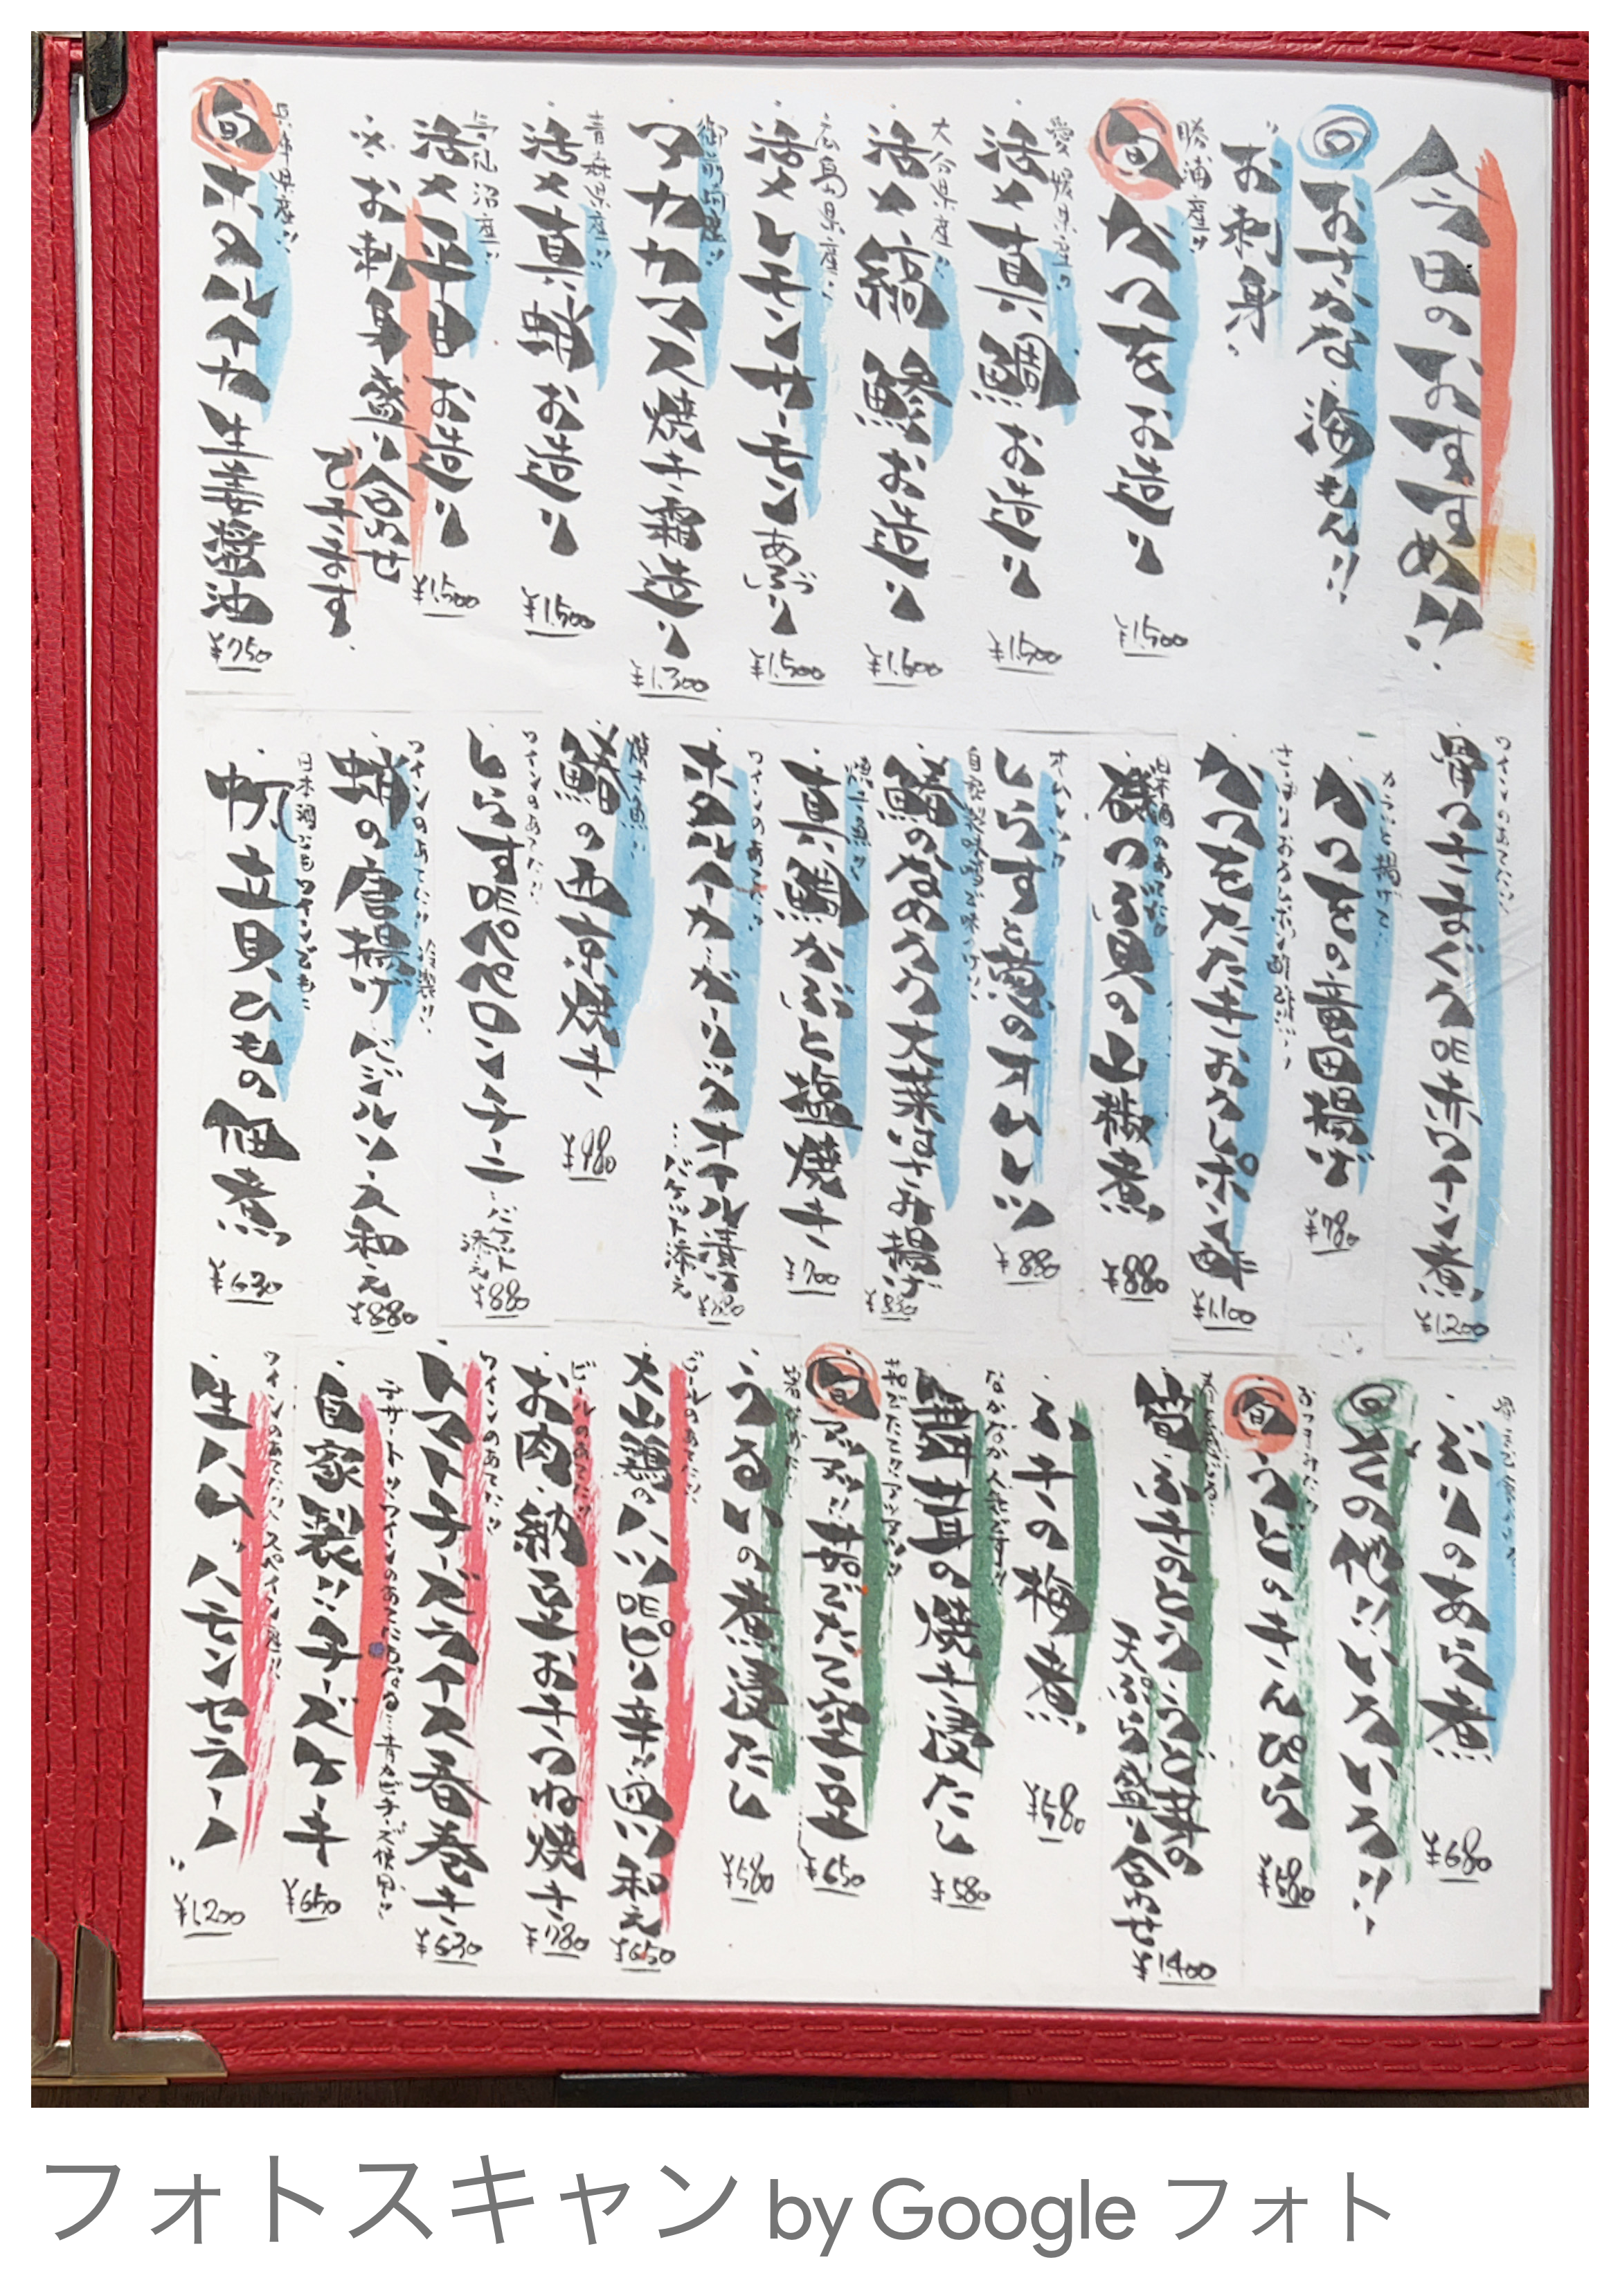 今日のおすすめ!!
おさかな 海もん!!
お刺身
勝浦産!!
旬 かつを お造り
¥1.500
愛媛県産
活〆 真鯛 お造り
¥1.500
大分県産!!
活〆 縞鯵 お造り
¥1.600
広島県産!!
活〆 レモンサーモン あぶり
¥1.500
御前崎産!!
アカカマス 焼き霜造り
¥1.300
青森県産!!
活〆 真蛸 お造り
¥1.500
気仙沼産!!
活〆 平目 お造り
¥1.500
※お刺身盛り合わせ
できます。
兵庫県産!!
旬 ホタルイカ 生姜醤油
¥750
ワインのあてに!!
骨つきまぐろDE赤ワイン煮
¥1.200
カラッと揚げて
かつをの竜田揚げ
¥780
かつをたたきおろしポン酢
¥1.100
日本酒のあてに
磯つぶ貝の山椒煮
¥880
オムレツ!!
しらすと葱のオムレツ
¥880
鰆のなめろう大葉はさみ揚げ
¥880
真鯛かぶと塩焼き
¥700
ワインのあてに!!
ホタルイカガーリックオイル漬け
…バケット添え
¥880
焼き魚!!
鰆の西京焼き
¥980
ワインのあてに!!
しらすDEペペロンチーニ
バケット添え
¥880
ワインのあてに!! 冷製!!
蛸の唐揚げ バジルソース和え
¥880
日本酒にもワインにも
帆立貝ひもの佃煮
¥630
ぶりのあら煮
¥680
その他!!いろいろ!!
おつまみに!!
旬 うどのきんぴら
¥580
筍・ふきのとう・うど芽の
天ぷら盛り合わせ
¥1.400
ふきの梅煮
¥580
舞茸の焼き浸だし
¥580
旬 アツアツ!! 茹でたて空豆
¥650
うるいの煮浸だし
¥580
ビールのあてに!!
大山鶏ハツDEピリ辛!!油い和え
¥650
ビールのあてに!!
お肉・納豆おきつね焼き
¥780
ワインのあてに!!
トマトチーズライス春巻き
¥630
自家製!!チーズケーキ
¥650
ワインのあてに!! スペイン産!!
生ハム!! ハモンセラーノ
¥1.200
フォトスキャン by Google フォト